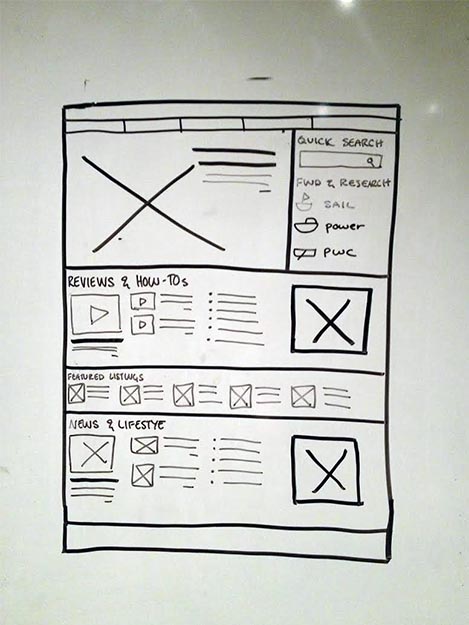 QUICK SEARCH
FIND & RESEARCH
SAIL
power
PWC
REVIEWS & HOW-TOs
FEATURED LISTINGS
NEWS & LIFESTYE